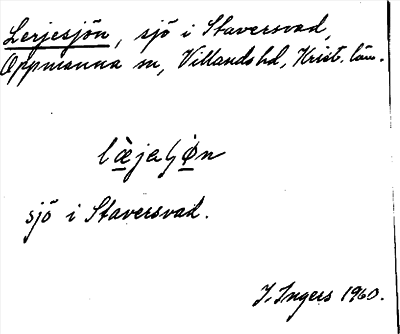 Lerjesjön, sjö i Staversvad,
Oppmanna sn, Villands hd, Krist. län.
l&aelig;̀jaʃø̀n
sjö i Staversvad.
I. Ingers 1960.